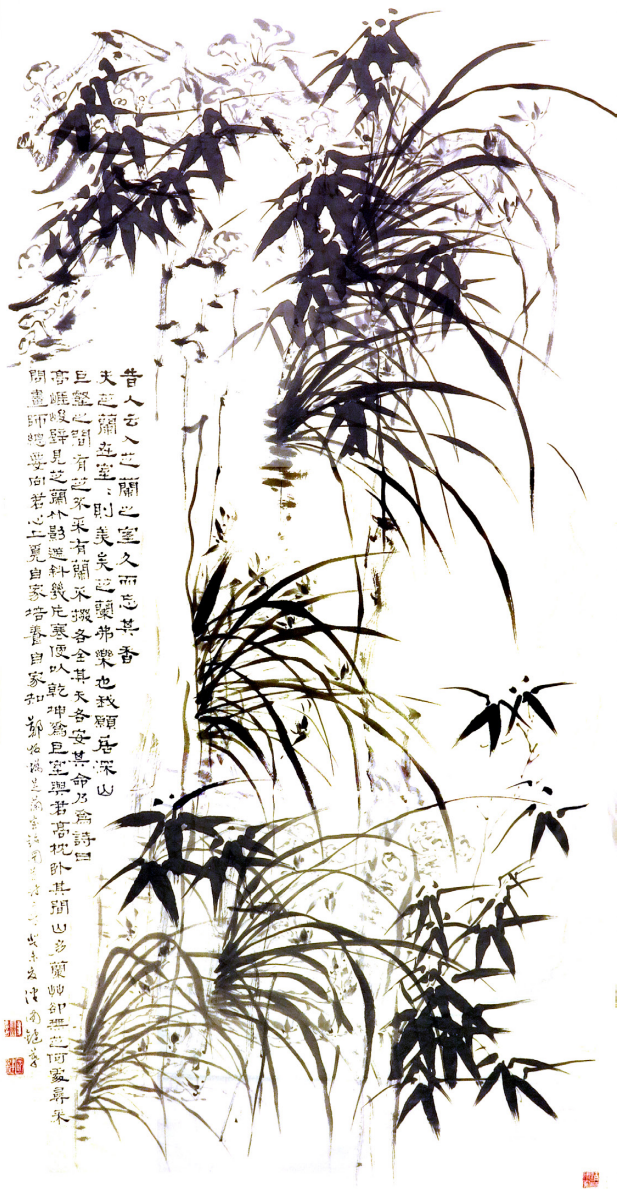 昔人云入芝蘭之室久而忘其香
夫芝蘭在室室則美矣芝蘭弗樂也我願居深山
巨壑之間有芝不采有蘭不掇各全其天各安其命乃為詩曰
高崖峻壁見芝蘭竹影遮斜幾片寒便以乾坤為巨室與君高枕臥其間山多蘭艸卻無芝何處尋來
問畫師總要向君心上覓自家培養自家知 鄭板橋芝蘭